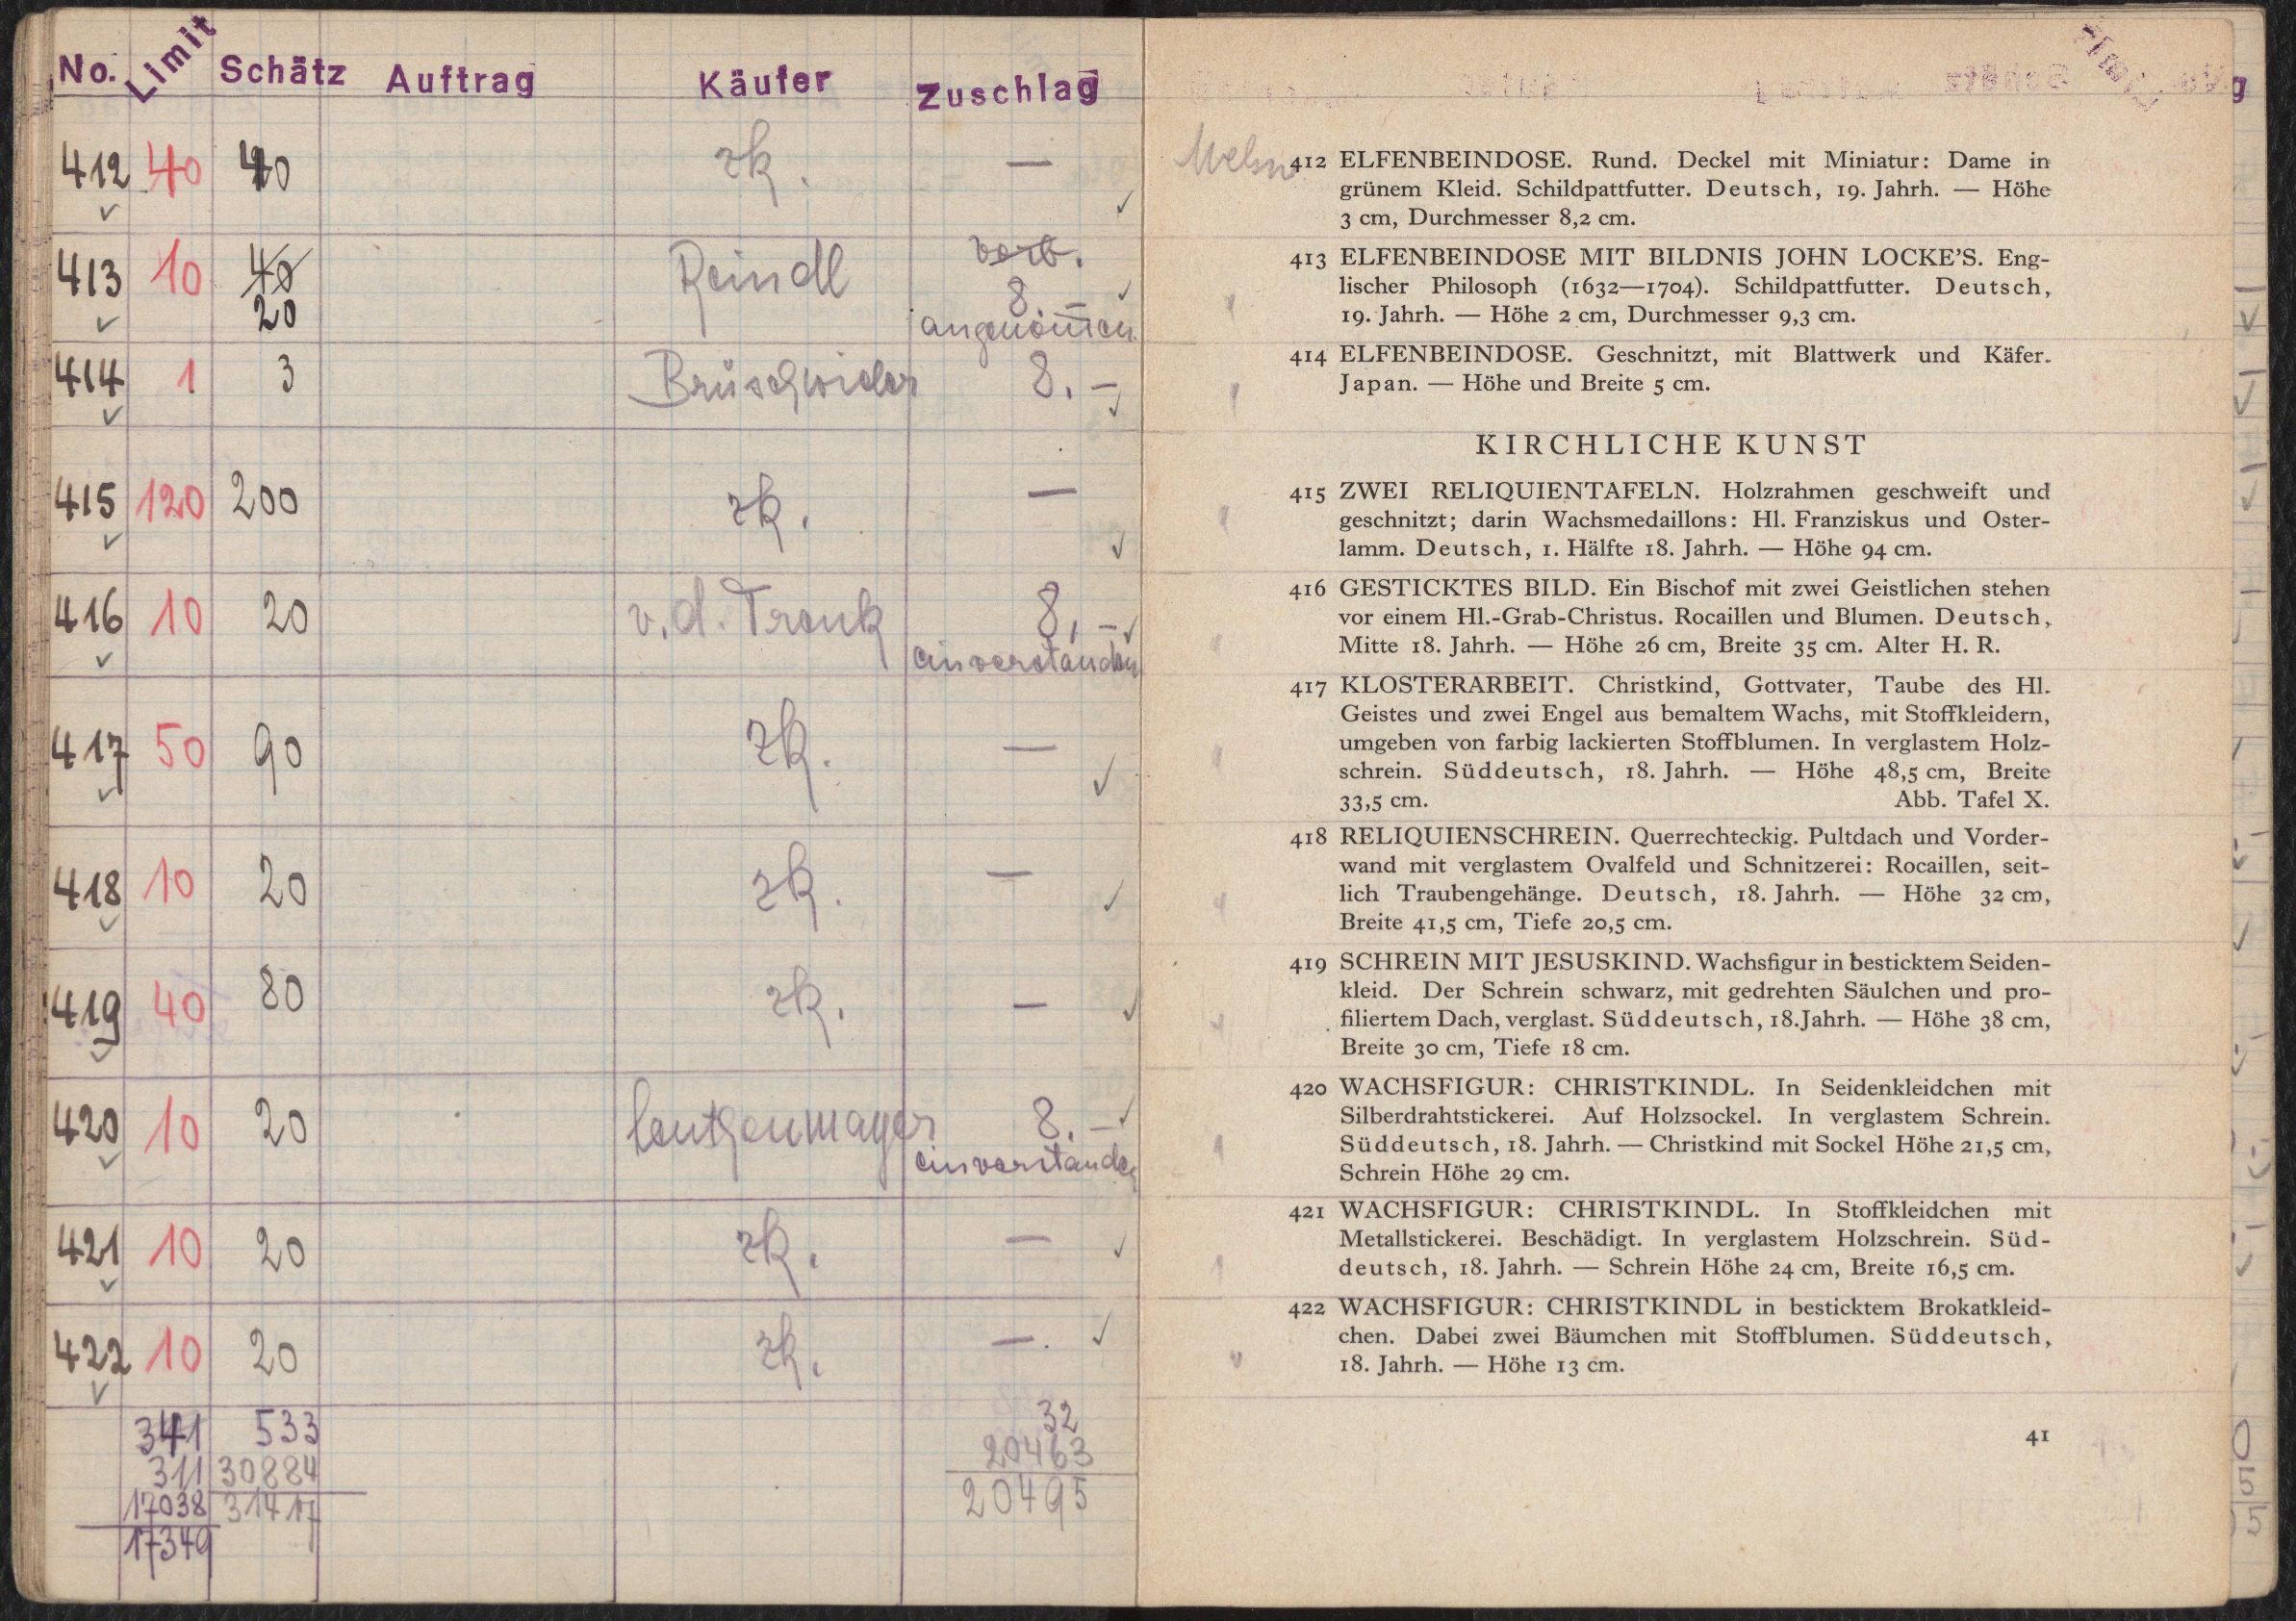 No. Limit Schätz Auftrag Käufer Zuschlag
412 40 40 zk. —
413 10 40 Reindl vorb.
20 8.—
angenommen
414 1 3 Brüschwiler 8.—
415 120 200 zk. —
416 10 20 v.d. Trenk 8,—
einverstanden
417 50 90 zk. —
418 10 20 zk. —
419 40 80 zk. —
420 10 20 8.—
einverstanden
421 10 20 zk. —
422 10 20 zk. —.
341 533 32
311 30884 20463
17038 31417 20495
17349
412 ELFENBEINDOSE. Rund. Deckel mit Miniatur: Dame in
grünem Kleid. Schildpattfutter. Deutsch, 19. Jahrh. — Höhe
3 cm, Durchmesser 8,2 cm.
413 ELFENBEINDOSE MIT BILDNIS JOHN LOCKE'S. Eng-
lischer Philosoph (1632—1704). Schildpattfutter. Deutsch,
19. Jahrh. — Höhe 2 cm, Durchmesser 9,3 cm.
414 ELFENBEINDOSE. Geschnitzt, mit Blattwerk und Käfer.
Japan. — Höhe und Breite 5 cm.
KIRCHLICHE KUNST
415 ZWEI RELIQUIENTAFELN. Holzrahmen geschweift und
geschnitzt; darin Wachsmedaillons: Hl. Franziskus und Oster-
lamm. Deutsch, 1. Hälfte 18. Jahrh. — Höhe 94 cm.
416 GESTICKTES BILD. Ein Bischof mit zwei Geistlichen stehen
vor einem Hl.-Grab-Christus. Rocaillen und Blumen. Deutsch,
Mitte 18. Jahrh. — Höhe 26 cm, Breite 35 cm. Alter H. R.
417 KLOSTERARBEIT. Christkind, Gottvater, Taube des Hl.
Geistes und zwei Engel aus bemaltem Wachs, mit Stoffkleidern,
umgeben von farbig lackierten Stoffblumen. In verglastem Holz-
schrein. Süddeutsch, 18. Jahrh. — Höhe 48,5 cm, Breite
33,5 cm. Abb. Tafel X.
418 RELIQUIENSCHREIN. Querrechteckig. Pultdach und Vorder-
wand mit verglastem Ovalfeld und Schnitzerei: Rocaillen, seit-
lich Traubengehänge. Deutsch, 18. Jahrh. — Höhe 32 cm,
Breite 41,5 cm, Tiefe 20,5 cm.
419 SCHREIN MIT JESUSKIND. Wachsfigur in besticktem Seiden-
kleid. Der Schrein schwarz, mit gedrehten Säulchen und pro-
filiertem Dach, verglast. Süddeutsch, 18. Jahrh. — Höhe 38 cm,
Breite 30 cm, Tiefe 18 cm.
420 WACHSFIGUR: CHRISTKINDL. In Seidenkleidchen mit
Silberdrahtstickerei. Auf Holzsockel. In verglastem Schrein.
Süddeutsch, 18. Jahrh. — Christkind mit Sockel Höhe 21,5 cm,
Schrein Höhe 29 cm.
421 WACHSFIGUR: CHRISTKINDL. In Stoffkleidchen mit
Metallstickerei. Beschädigt. In verglastem Holzschrein. Süd-
deutsch, 18. Jahrh. — Schrein Höhe 24 cm, Breite 16,5 cm.
422 WACHSFIGUR: CHRISTKINDL in besticktem Brokatkleid-
chen. Dabei zwei Bäumchen mit Stoffblumen. Süddeutsch,
18. Jahrh. — Höhe 13 cm.
41